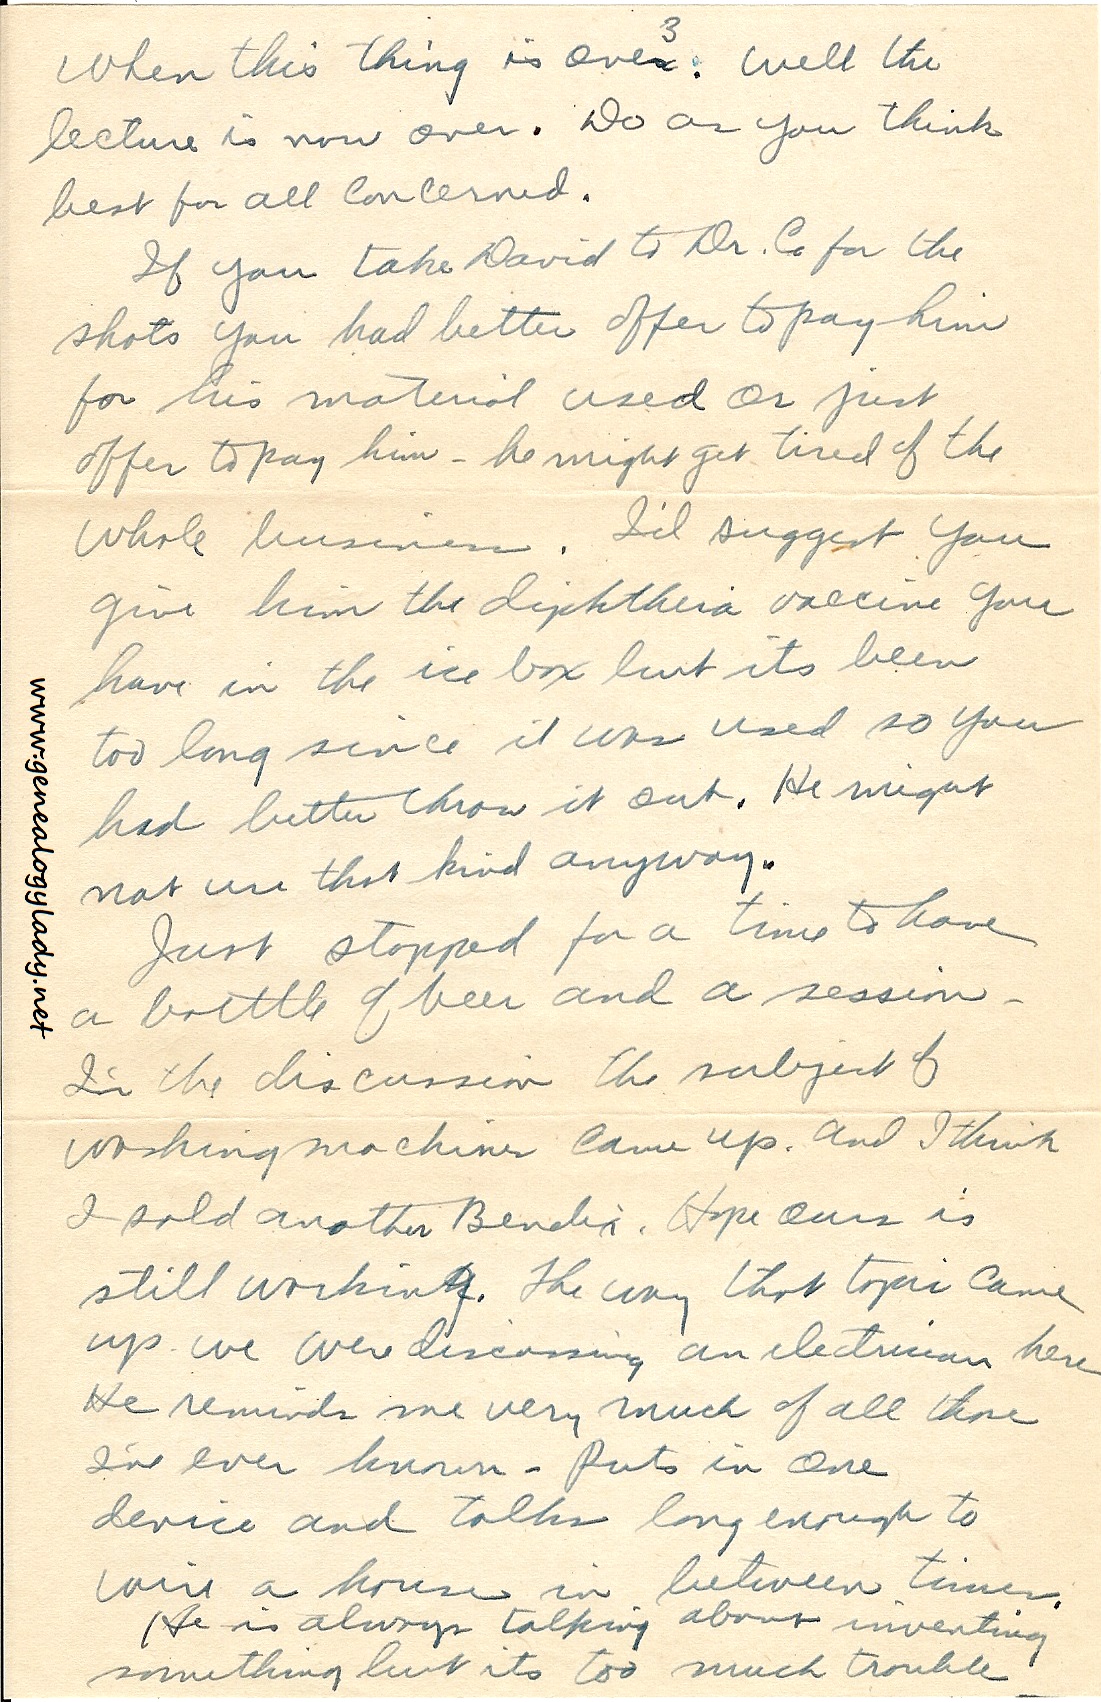 3
When this thing is over. Well the
lecture is now over. Do as you think
best for all concerned.
If you take David to Dr. C. for the
shots you had better offer to pay him
for his material used or just
offer to pay him - he might get tired of the
whole business. I'd suggest you
give him the diphtheria vaccine you
have in the ice box but its been
too long since it was used so you
had better throw it out. He might
not use that kind anyway.
Just stopped for a time to have
a bottle of beer and a session -
In the discussion the subject of
washing machines came up. And I think
I sold another Bendix. Hope ours is
still working. The way that topic came
up we were discussing an electrician here
He reminds me very much of all those
I've ever known - Puts in one
device and talks long enough to
wire a house in between times.
He is always talking about inventing
something but its too much trouble
www.genealogylady.net